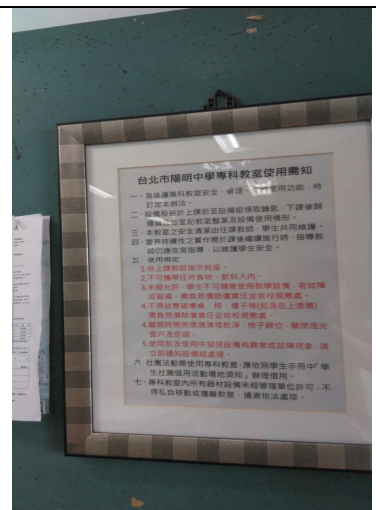 台北市陽明中學專科教室使用需知
一、為維護專科教室安全、管理 使用功能，特
訂定本辦法。
二、設備股長於上課前至設備組領取鑰匙，下課後歸
還 並登記教室整潔及設備使用情形。
三、本教室之安全清潔由任課教師、學生共同維護。
四、當有持續性之實作需於課後繼續進行時，指導教
師仍應在旁指導，以維護學生安全。
五、使用規定
1.依上課教師指示就座。
2.不可攜帶任何食物、飲料入內。
3.未經允許，學生不可隨意使用教學設備，若故障
或毀損，需負照價賠償責任並依校規懲處。
4.不得故意破壞桌、椅、櫃子等(包含在上塗鴉)，
需負照價賠償責任並依校規懲處。
4.離開時需將環境清理乾淨、椅子歸位、關閉燈光
窗戶及空調。
5.使用前及使用中發現設備有異常或故障現象，請
立即通知設備組處理。
六、社團活動需使用專科教室，應依照學生手冊中「學
生社團借用活動場地須知」辦理借用。
七、專科教室內所有器材設備未經管理單位許可，不
得私自移動或攜離教室，違者依法處理。